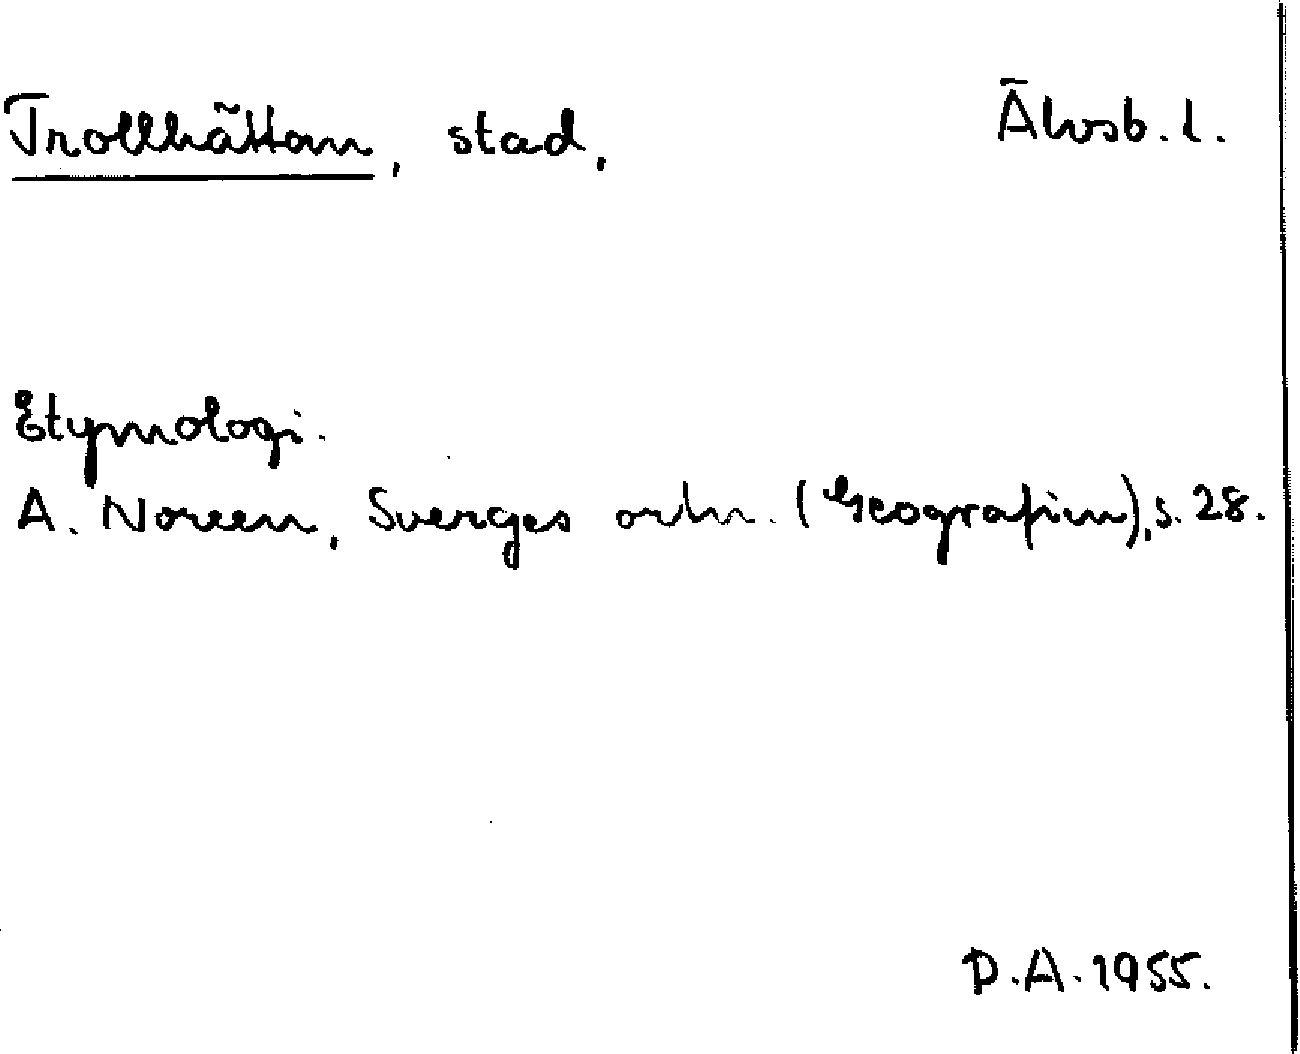 Trollhättan, stad, Älvsb. l.
Etymologi.
A. Noreen, Sverges ortn. (Geografien), s. 28.
D.A. 1955.